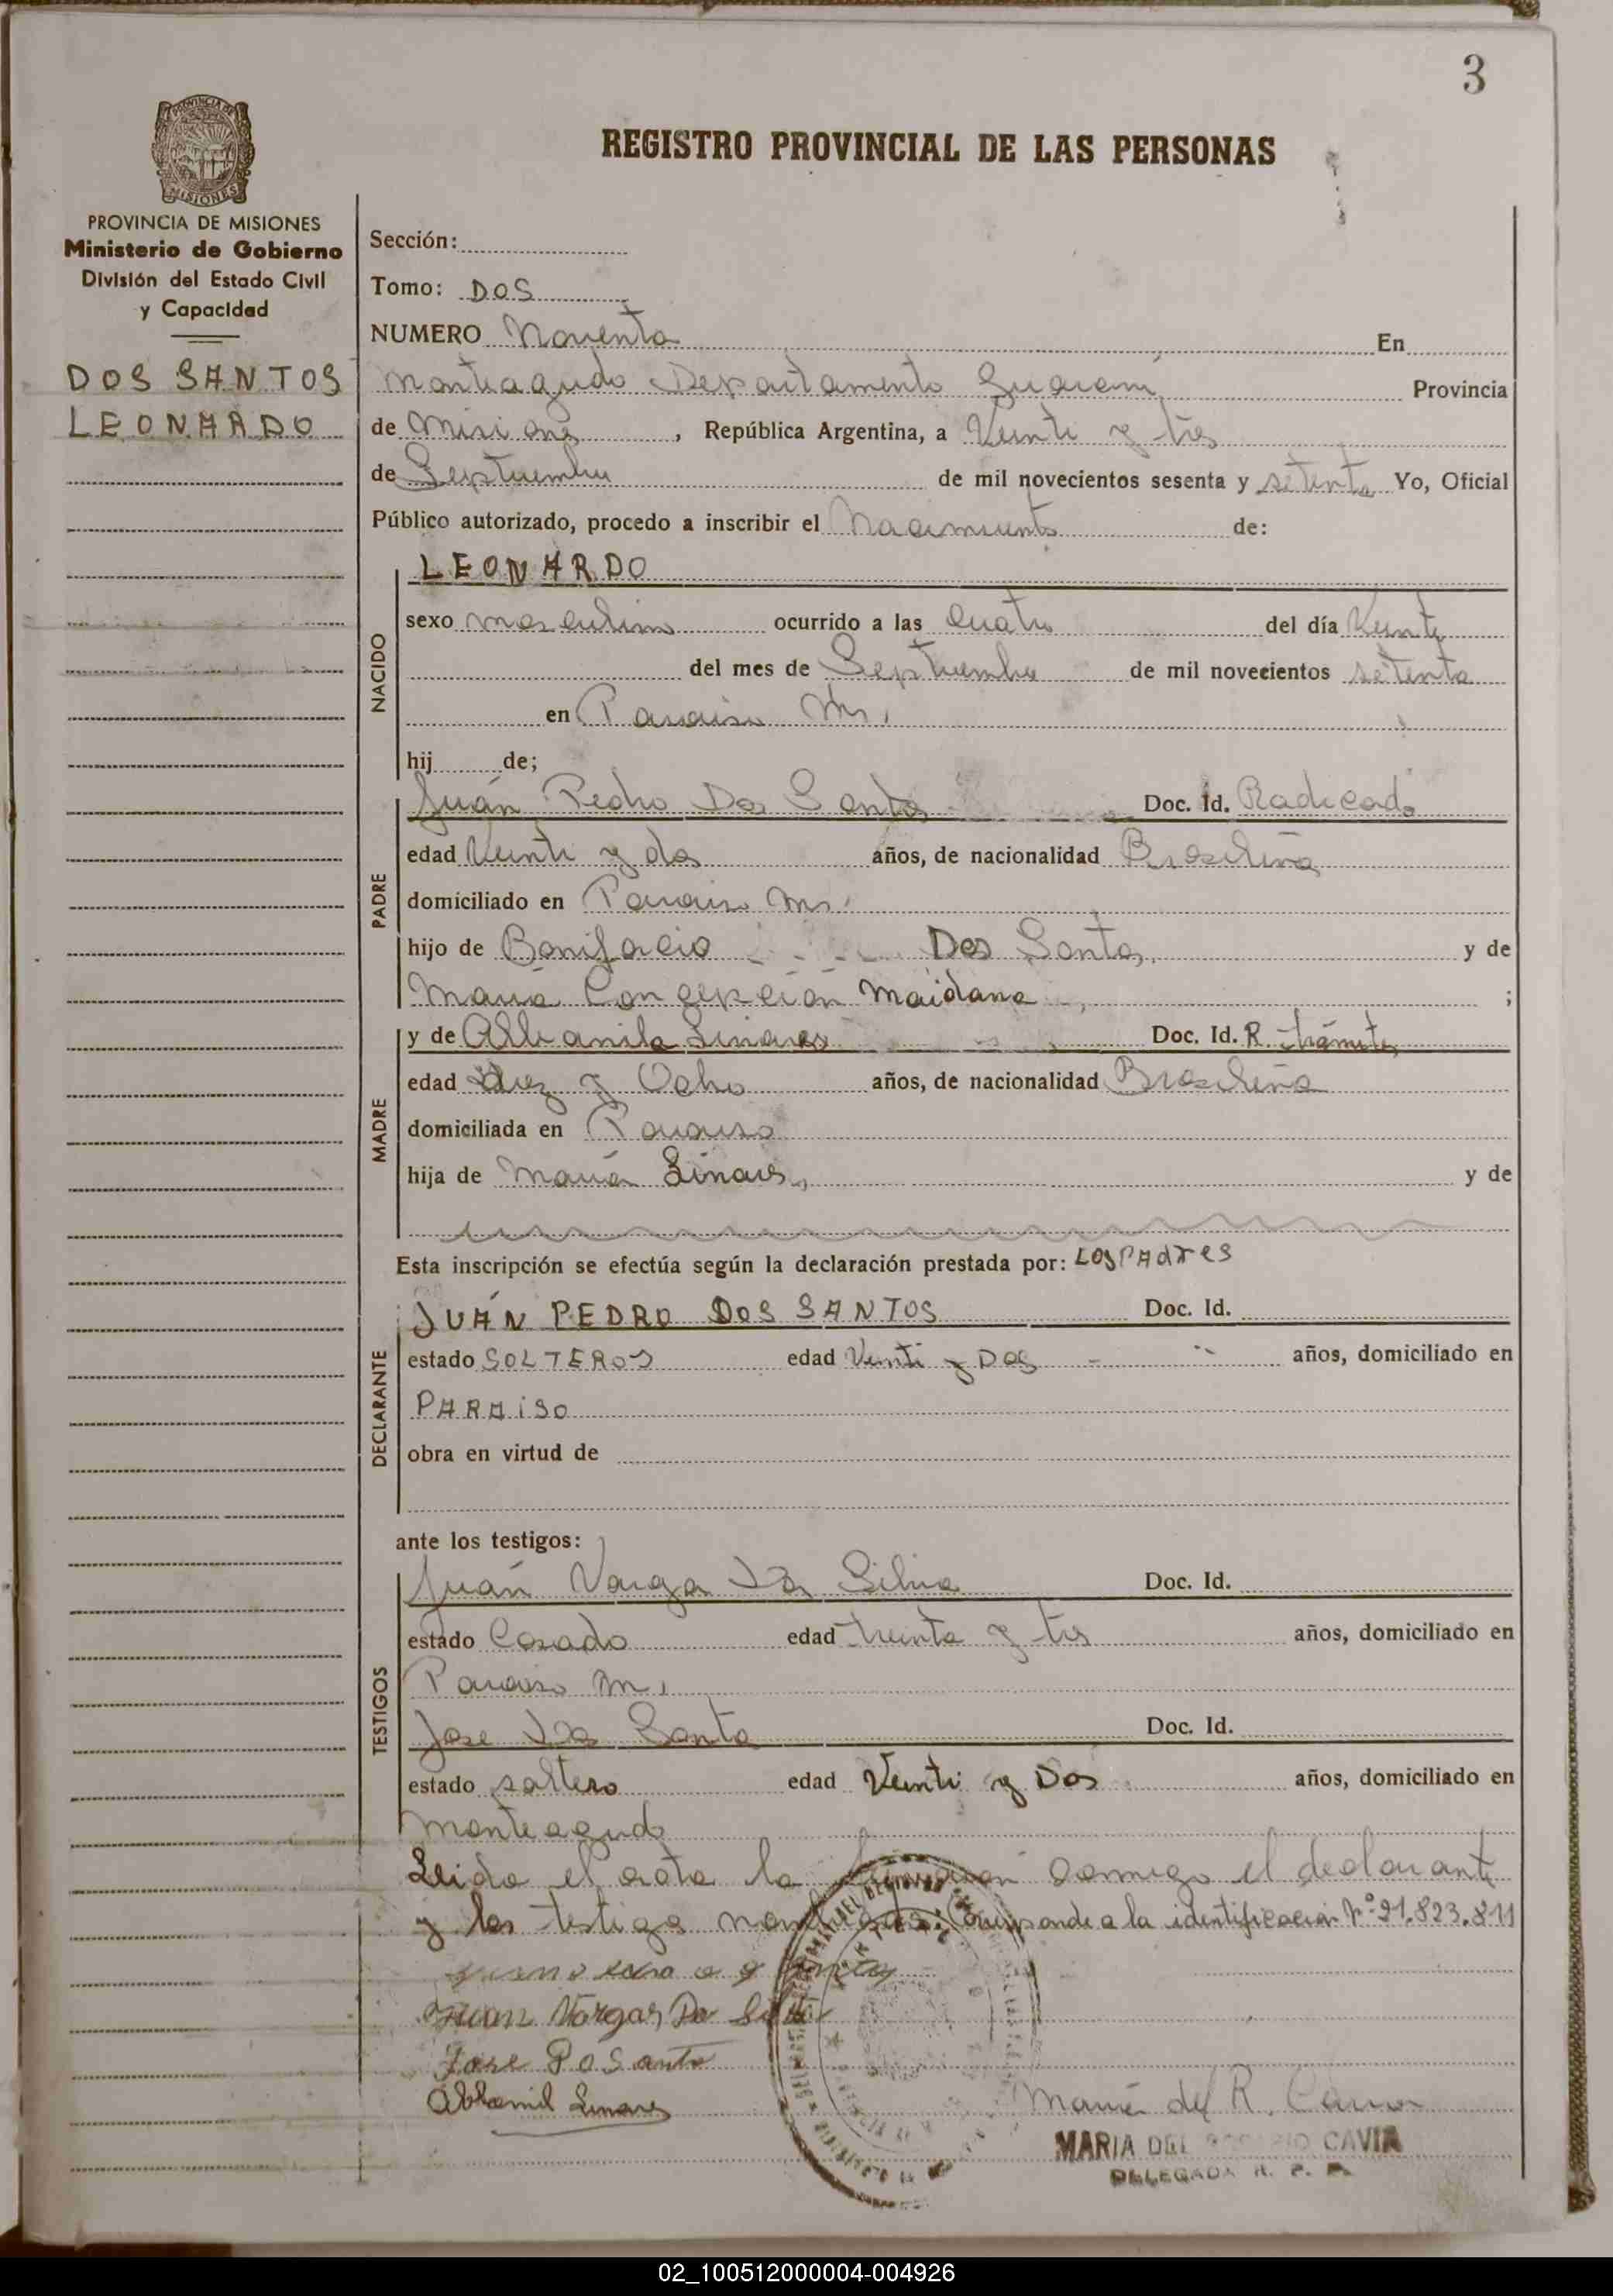 3
PROVINCIA DE MISIONES
REGISTRO PROVINCIAL DE LAS PERSONAS
PROVINCIA DE MISIONES
Ministerio de Gobierno
División del Estado Civil
y Capacidad
DOS SANTOS
LEONARDO
Sección:
Tomo: DOS
NUMERO Noventa En
Monteagudo Departamento Guaraní Provincia
de Misiones, República Argentina, a Veinti y tres
de Septiembre de mil novecientos sesenta y setenta Yo, Oficial
Público autorizado, procedo a inscribir el Nacimiento de:
NACIDO
LEONARDO
sexo masculino ocurrido a las cuatro del día Veinte
del mes de Septiembre de mil novecientos setenta
en Paraiso Ms.
hij de;
PADRE
Juán Pedro Dos Santos Doc. Id. Radicado
edad Veinti y dos años, de nacionalidad Brasileña
domiciliado en Paraiso Ms.
hijo de Bonifacio Dos Santos, y de
María Concepción Maidana ;
MADRE
y de Albanila Linares Doc. Id. R. trámite
edad Diez y Ocho años, de nacionalidad Brasileña
domiciliada en Paraiso
hija de María Linares, y de
Esta inscripción se efectúa según la declaración prestada por: Los PAdres
DECLARANTE
JUÁN PEDRO DOS SANTOS Doc. Id.
estado SOLTEROS edad Veinti y Dos años, domiciliado en
PARAISO
obra en virtud de
ante los testigos:
TESTIGOS
Juán Varga Da Silva Doc. Id.
estado Casado edad treinta y tres años, domiciliado en
Paraiso M,
Jose Dos Santo Doc. Id.
estado soltero edad Veinti y Dos años, domiciliado en
Monteagudo
Leida el acta la conmigo el declarante
y los testigo Corresponde a la identificación Nº 21.823.811
Juan Vargas Da Silva
Jose Do Santo
Linares
María del R. Cavia
MARIA DEL ROSARIO CAVIA
DELEGADA R. P. P.
02_100512000004-004926